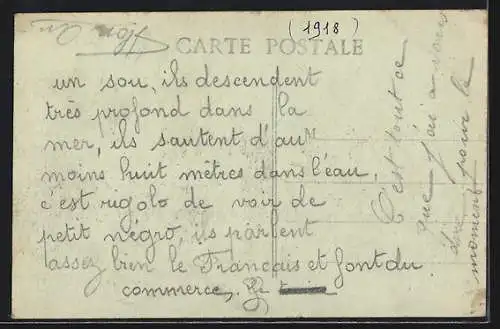 (1918)
CARTE POSTALE
un sou, ils descendent
très profond dans la
mer, ils sautent d'au
moins huit mètres dans l'eau,
c'est rigolo de voir de
petit négro, ils parlent
assez bien le Francais et font du
commerce,
C'est tout ce
que j'ai a vous
dire pour le
moment